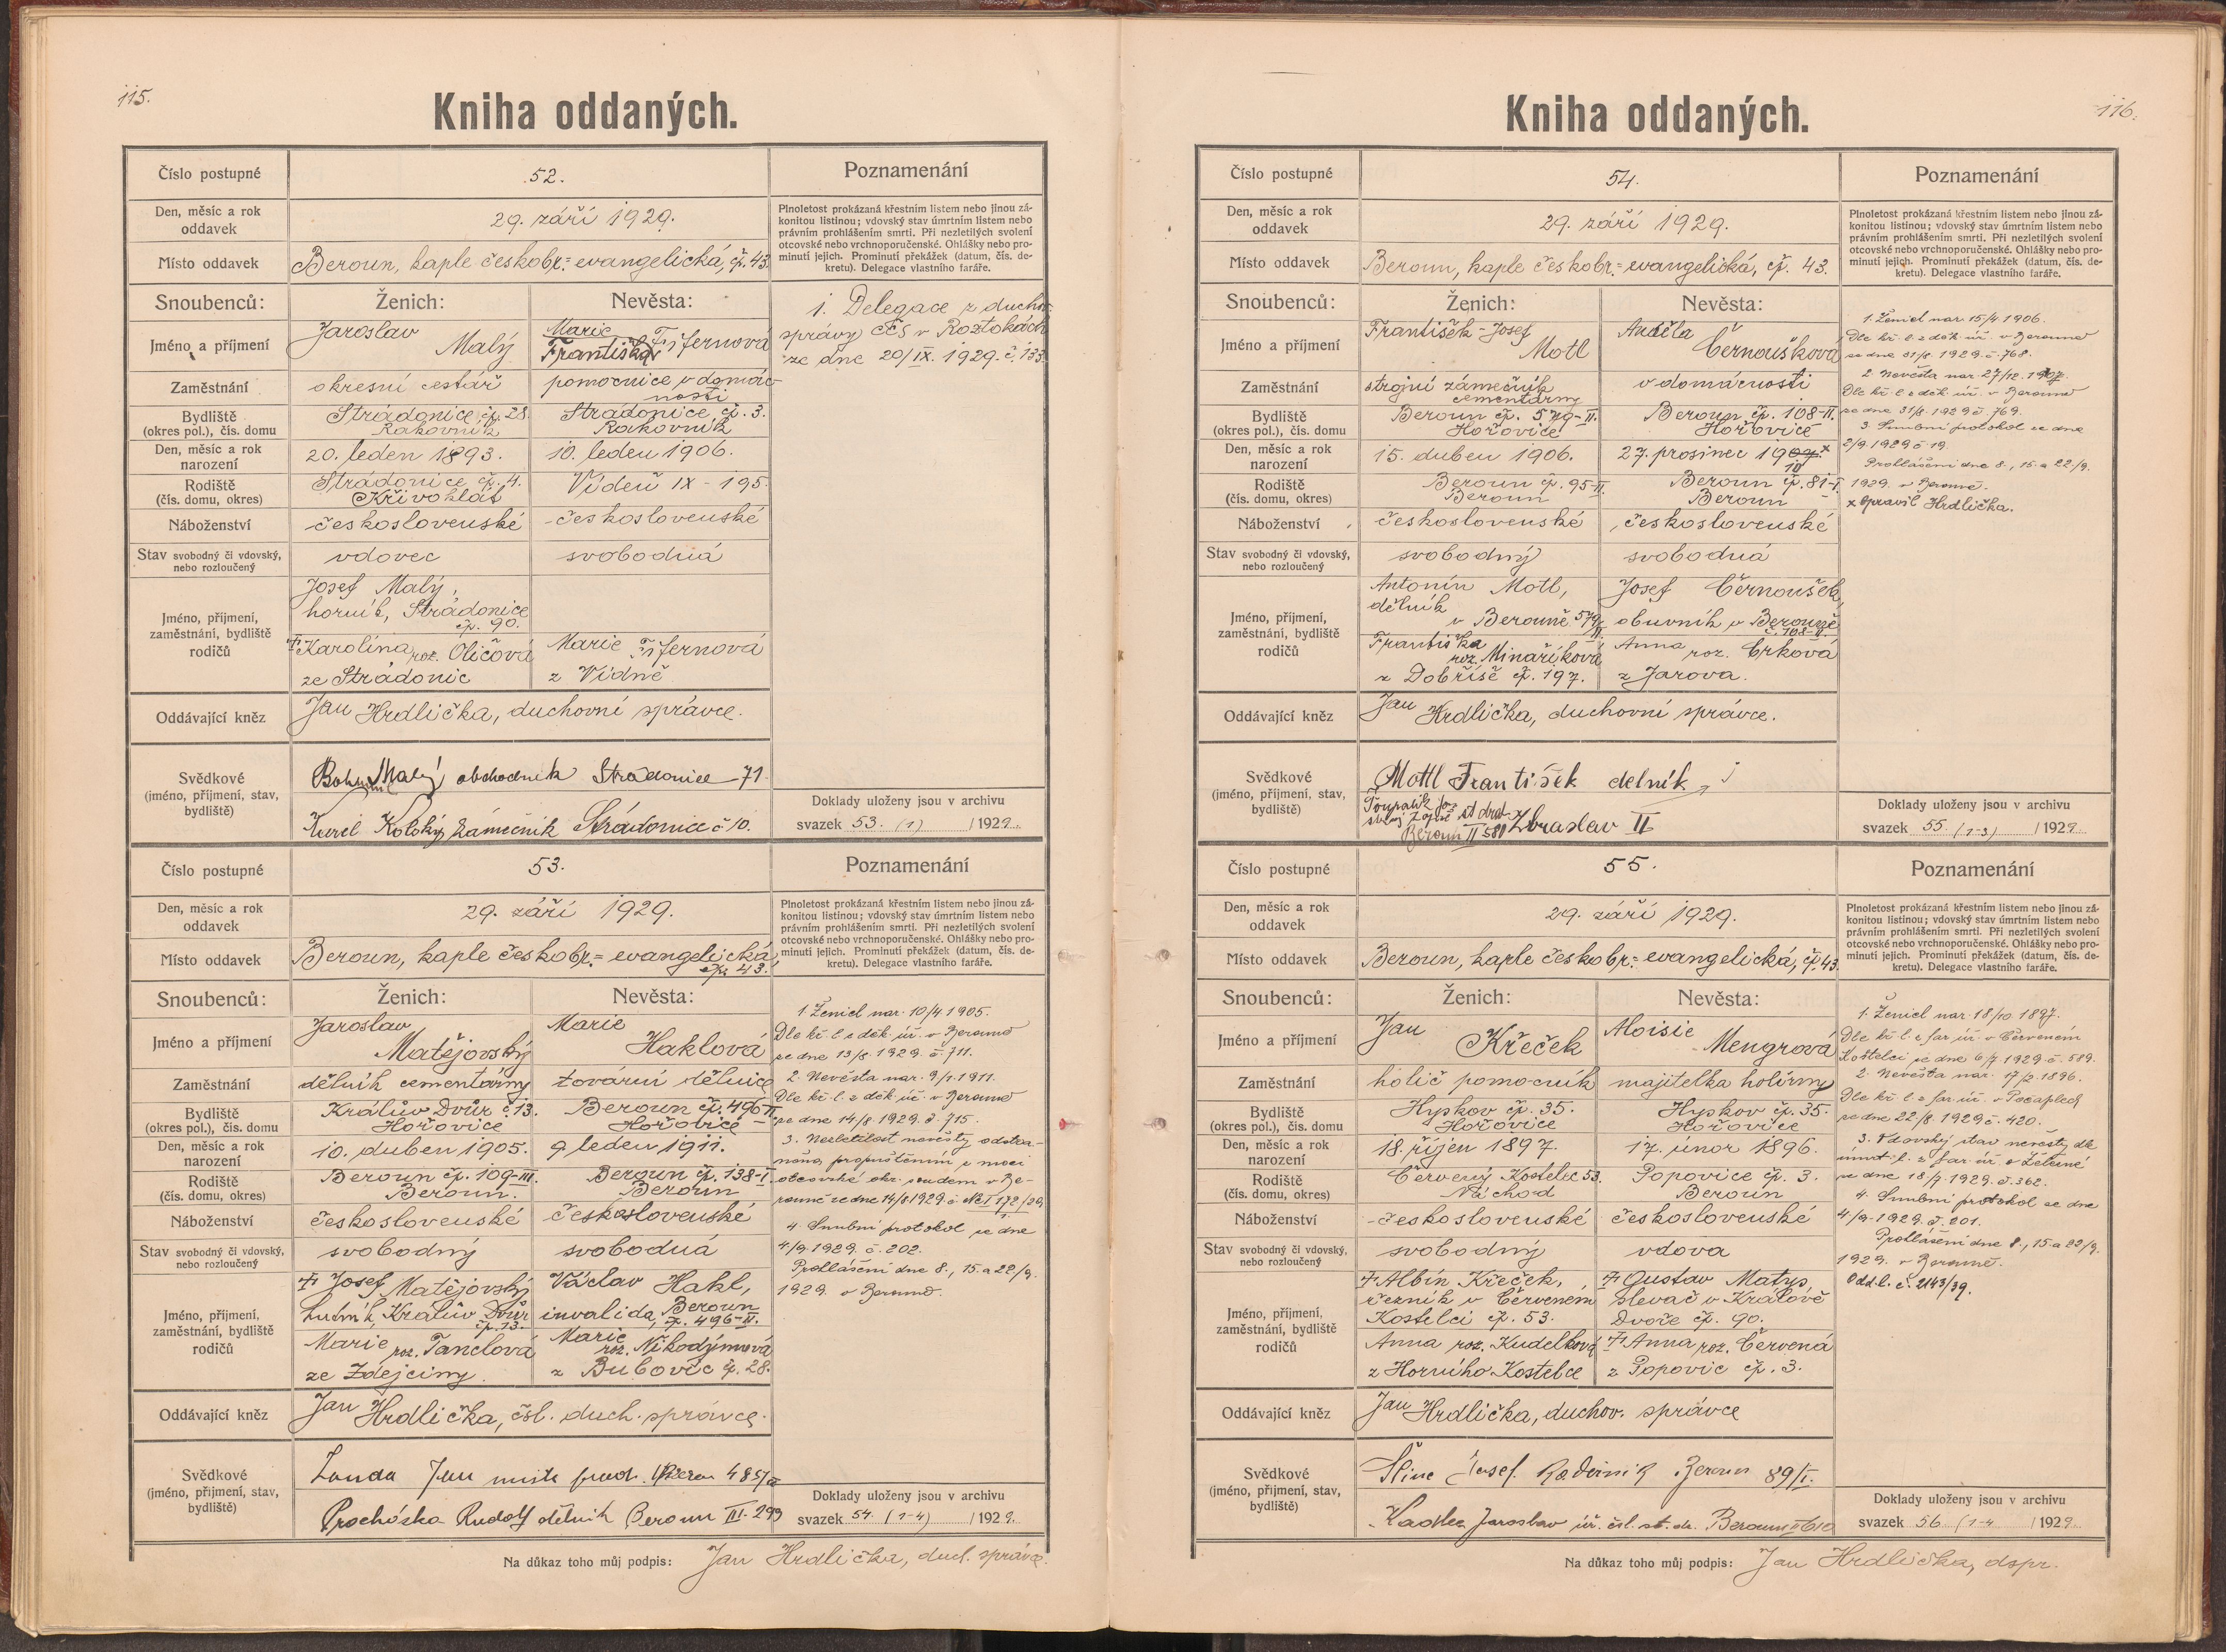 115.
Kniha oddaných.
Číslo postupné
52.
Poznamenání
Den, měsíc a rok
oddavek
29. září 1929.
Plnoletost prokázaná křestním listem nebo jinou zá-
konitou listinou; vdovský stav úmrtním listem nebo
právním prohlášením smrti. Při nezletilých svolení
otcovské nebo vrchnoporučenské. Ohlášky nebo pro-
minutí jejich. Prominutí překážek (datum, čís. de-
kretu). Delegace vlastního faráře.
Místo oddavek
Beroun, kaple českobr.=evangelická, čp. 43.
Snoubenců:
Ženich:
Nevěsta:
Jméno a příjmení
Jaroslav
Malý
Marie
Františka Fišfernová
Zaměstnání
okresní cestář
pomocnice v domác-
nosti
Bydliště
(okres pol.), čís. domu
Strádonice, čp. 28.
Rakovník
Strádonice, čp. 3.
Rakovník
Den, měsíc a rok
narození
20. leden 1893.
10. leden 1906.
Rodiště
(čís. domu, okres)
Strádonice čp. 4.
Křivoklát
Vídeň IX - 195.
Náboženství
československé
československé
Stav svobodný či vdovský,
nebo rozloučený
vdovec
svobodná
Jméno, příjmení,
zaměstnání, bydliště
rodičů
Josef Malý,
horník, Strádonice
čp. 90.
Karolína roz. Oličová
ze Strádonic
Marie
z Vídně
1. Delegace z duch.
správy CČS v Roztokách
ze dne 20/IX. 1929. č. 133.
Oddávající kněz
Jan Hrdlička, duchovní správce.
Svědkové
(jméno, příjmení, stav,
bydliště)
Malý obchodník Strádonice 71
Karel Kolský zámečník Strádonice č 10.
Doklady uloženy jsou v archivu
svazek 53. (1) /1929.
Číslo postupné
53.
Poznamenání
Den, měsíc a rok
oddavek
29. září 1929.
Plnoletost prokázaná křestním listem nebo jinou zá-
konitou listinou; vdovský stav úmrtním listem nebo
právním prohlášením smrti. Při nezletilých svolení
otcovské nebo vrchnoporučenské. Ohlášky nebo pro-
minutí jejich. Prominutí překážek (datum, čís. de-
kretu). Delegace vlastního faráře.
Místo oddavek
Beroun, kaple českobr.=evangelická,
čp. 43.
Snoubenců:
Ženich:
Nevěsta:
Jméno a příjmení
Jaroslav
Matějovský
Marie
Haklová
Zaměstnání
dělník cementárny
tovární dělnice
Bydliště
(okres pol.), čís. domu
Králův Dvůr č. 13.
Hořovice
Beroun čp. 496-II
Hořovice
Den, měsíc a rok
narození
10. duben 1905.
9. leden 1911.
Rodiště
(čís. domu, okres)
Beroun čp. 109-III.
Beroun.
Beroun čp. 138-I.
Beroun
Náboženství
československé
československé
Stav svobodný či vdovský,
nebo rozloučený
svobodný
svobodná
Jméno, příjmení,
zaměstnání, bydliště
rodičů
Josef Matějovský
hutník, Králův Dvůr
čp. 13.
Marie roz. Tanclová
ze Zdejciny.
Václav Hakl,
invalida, Beroun
čp. 496-II.
Marie
roz. Nikodýmová
z Bubovic čp. 28.
1. Ženich nar. 10/4 1905.
Dle kř. l. z děk. úř. v Berouně
ze dne 13/8. 1929. č. 711.
2. Nevěsta nar. 9/1. 1911.
Dle kř. l. z děk. úř. v Berouně
ze dne 14/8. 1929. č. 715.
3. Nezletilost nevěsty odstra-
něna propuštěním z moci
otcovské okr. soudem v Be-
rouně ze dne 14/8 1929 č. Nc I 172/29
4. Snubní protokol ze dne
4/9. 1929. č. 202.
Prohlášení dne 8., 15. a 22/9.
1929. v Berouně.
Oddávající kněz
Jan Hrdlička, čsl. duch. správce.
Svědkové
(jméno, příjmení, stav,
bydliště)
Landa Jan
Procházka Rudolf dělník Beroun III. 293
Doklady uloženy jsou v archivu
svazek 54. (1-4) /1929.
Na důkaz toho můj podpis: Jan Hrdlička, duch. správce.
116.
Kniha oddaných.
Číslo postupné
54.
Poznamenání
Den, měsíc a rok
oddavek
29. září 1929.
Plnoletost prokázaná křestním listem nebo jinou zá-
konitou listinou; vdovský stav úmrtním listem nebo
právním prohlášením smrti. Při nezletilých svolení
otcovské nebo vrchnoporučenské. Ohlášky nebo pro-
minutí jejich. Prominutí překážek (datum, čís. de-
kretu). Delegace vlastního faráře.
Místo oddavek
Beroun, kaple českobr.=evangelická, čp. 43.
Snoubenců:
Ženich:
Nevěsta:
Jméno a příjmení
František-Josef
Motl
Anděla
Černoušková
Zaměstnání
strojní zámečník
cementárny
v domácnosti
Bydliště
(okres pol.), čís. domu
Beroun čp. 579-II.
Hořovice
Beroun čp. 108-II.
Hořovice
Den, měsíc a rok
narození
15. duben 1906.
27. prosinec 1907.x
10
Rodiště
(čís. domu, okres)
Beroun čp. 95-II.
Beroun
Beroun čp. 81-I.
Beroun
Náboženství
československé
československé
Stav svobodný či vdovský,
nebo rozloučený
svobodný
svobodná
Jméno, příjmení,
zaměstnání, bydliště
rodičů
Antonín Motl,
dělník
v Berouně 579/II.
Františka
roz. Minaříková
z Dobříše čp. 197.
Josef Černoušek,
obuvník v Berouně
č. 108-II.
Anna roz. Crková
z Jarova.
1. Ženich nar. 15/4. 1906.
Dle kř. l. z děk. úř. v Berouně
ze dne 31/8. 1929. č. 768.
2. Nevěsta nar. 27/12. 1907.
Dle kř. l. z děk. úř. v Berouně
ze dne 31/8. 1929 č. 769.
3. Snubní protokol ze dne
2/9. 1929 č. 19
Prohlášení dne 8., 15. a 22/9.
1929. v Berouně.
x opravil Hrdlička.
Oddávající kněz
Jan Hrdlička, duchovní správce.
Svědkové
(jméno, příjmení, stav,
bydliště)
Mottl František delník
Zbraslav II
Beroun II 580
Doklady uloženy jsou v archivu
svazek 55. (1-3) /1929.
Číslo postupné
55.
Poznamenání
Den, měsíc a rok
oddavek
29. září 1929.
Plnoletost prokázaná křestním listem nebo jinou zá-
konitou listinou; vdovský stav úmrtním listem nebo
právním prohlášením smrti. Při nezletilých svolení
otcovské nebo vrchnoporučenské. Ohlášky nebo pro-
minutí jejich. Prominutí překážek (datum, čís. de-
kretu). Delegace vlastního faráře.
Místo oddavek
Beroun, kaple českobr.=evangelická, čp. 43.
Snoubenců:
Ženich:
Nevěsta:
Jméno a příjmení
Jan
Křeček
Aloisie
Mengrová
Zaměstnání
holič pomocník
majitelka holírny
Bydliště
(okres pol.), čís. domu
Hyskov čp. 35.
Hořovice
Hyskov čp. 35.
Hořovice
Den, měsíc a rok
narození
18. říjen 1897.
17. únor 1896.
Rodiště
(čís. domu, okres)
Červený Kostelec 53.
Náchod
Popovice čp. 3.
Beroun
Náboženství
československé
československé
Stav svobodný či vdovský,
nebo rozloučený
svobodný
vdova
Jméno, příjmení,
zaměstnání, bydliště
rodičů
Albín Křeček,
řezník v Červeném
Kostelci čp. 53.
Anna roz. Kudelková
z Horního Kostelce
Gustav Matys,
slevač v Králově
Dvoře čp. 90.
Anna roz. Červená
z Popovic čp. 3.
1. Ženich nar. 18/10. 1897.
Dle kř. l. z far. úř. v Červeném
Kostelci ze dne 6/7. 1929 č. 589.
2. Nevěsta nar. 17/2. 1896.
Dle kř. l. z far. úř. v Počaplech
ze dne 22/8. 1929 č. 420.
3. Vdovský stav nevěsty dle
úmrt. l. z far. úř. v Železné
ze dne 18/7. 1929. č. 362.
4. Snubní protokol ze dne
4/9. 1929. č. 201.
Prohlášení dne 8., 15. a 22/9.
1929. v Berouně.
Odd. l. č. 2143/39.
Oddávající kněz
Jan Hrdlička, duchov. správce
Svědkové
(jméno, příjmení, stav,
bydliště)
Josef Beroun 89/I.
Kadlec Jaroslav úř. čsl. st. dr. Beroun II 610
Doklady uloženy jsou v archivu
svazek 56. (1-4 /1929.
Na důkaz toho můj podpis: Jan Hrdlička, dspr.